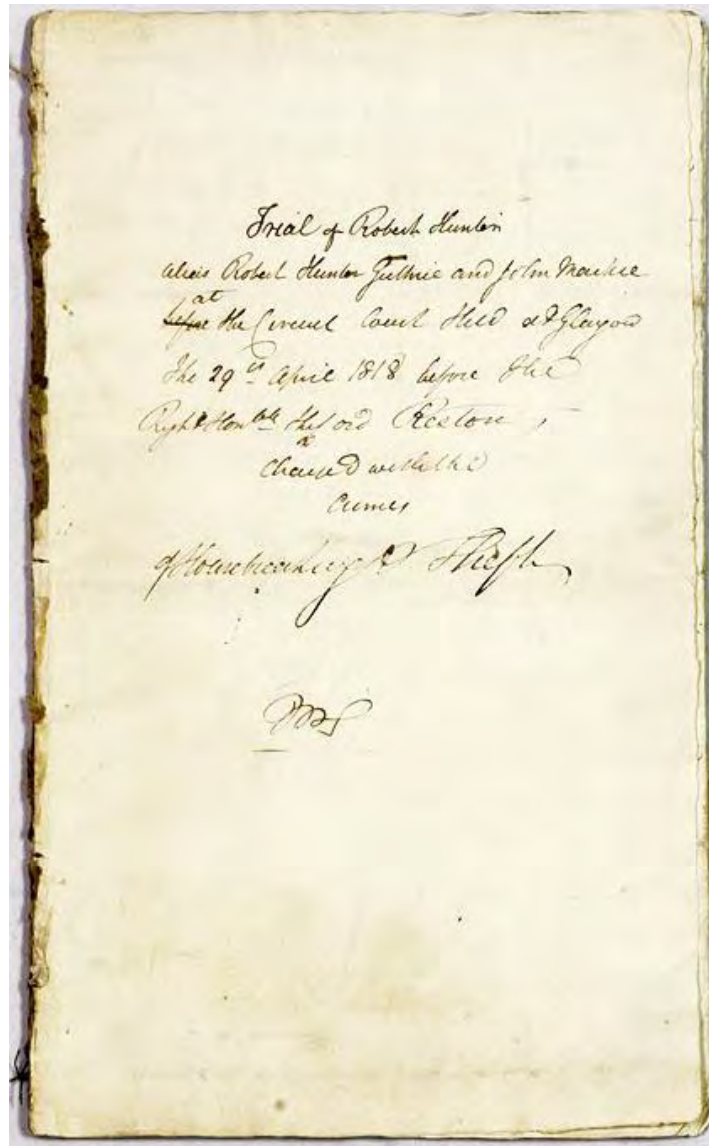 Trial of Robert Hunter
alias Robert Hunter Guthrie and John Mackie
before at the Circuit Court Held at Glasgow
The 29th April 1818 before the
Right Honble the Lord Reston
charged with the
crimes
of Housebreaking & Theft